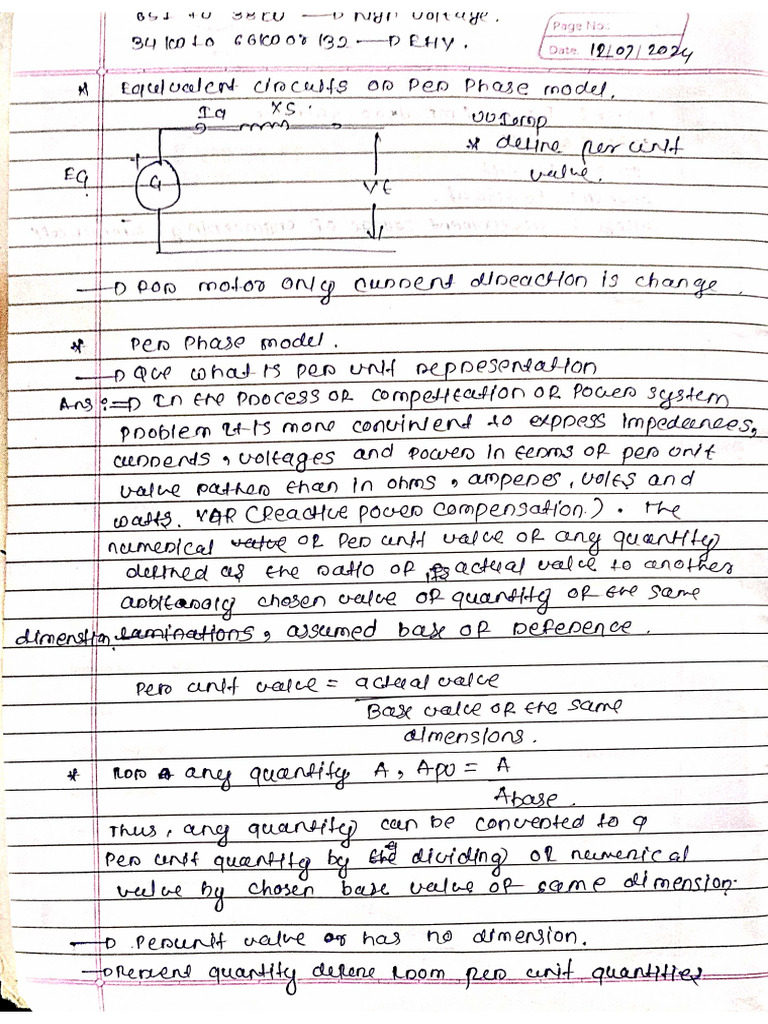 to 33KV —D High voltage.
Page No:
Date: 12/07/2024
—D EHV.
* Equivalent circuits or Per Phase model.
Ia XS.
VVIomp
* define per unit
value.
Eg
G
Vt
+
-
—D For motor only current direaction is change.
* Per Phase model.
—D Que what is per unit representation
Ans :=D In the process of compettation of power system
problem it is more convinient to express impedeences,
currents, voltages and power in terms of per unit
value rather than in ohms, amperes, volts and
watts. VAR (Reactive power compensation). The
numerical value of per unit value of any quantity
defined as the ratio of its actual value to another
arbitaraly chosen value of quantity of the same
dimension laminations, assumed base or reference.
Per unit value = actual value
Base value of the same
dimensions.
* For any quantity A, Apu = A
Abase.
Thus, any quantity can be converted to a
per unit quantity by the dividing of numerical
value by chosen base value of same dimension.
—D Perunit value or has no dimension.
—D Percent quantity define from per unit quantities